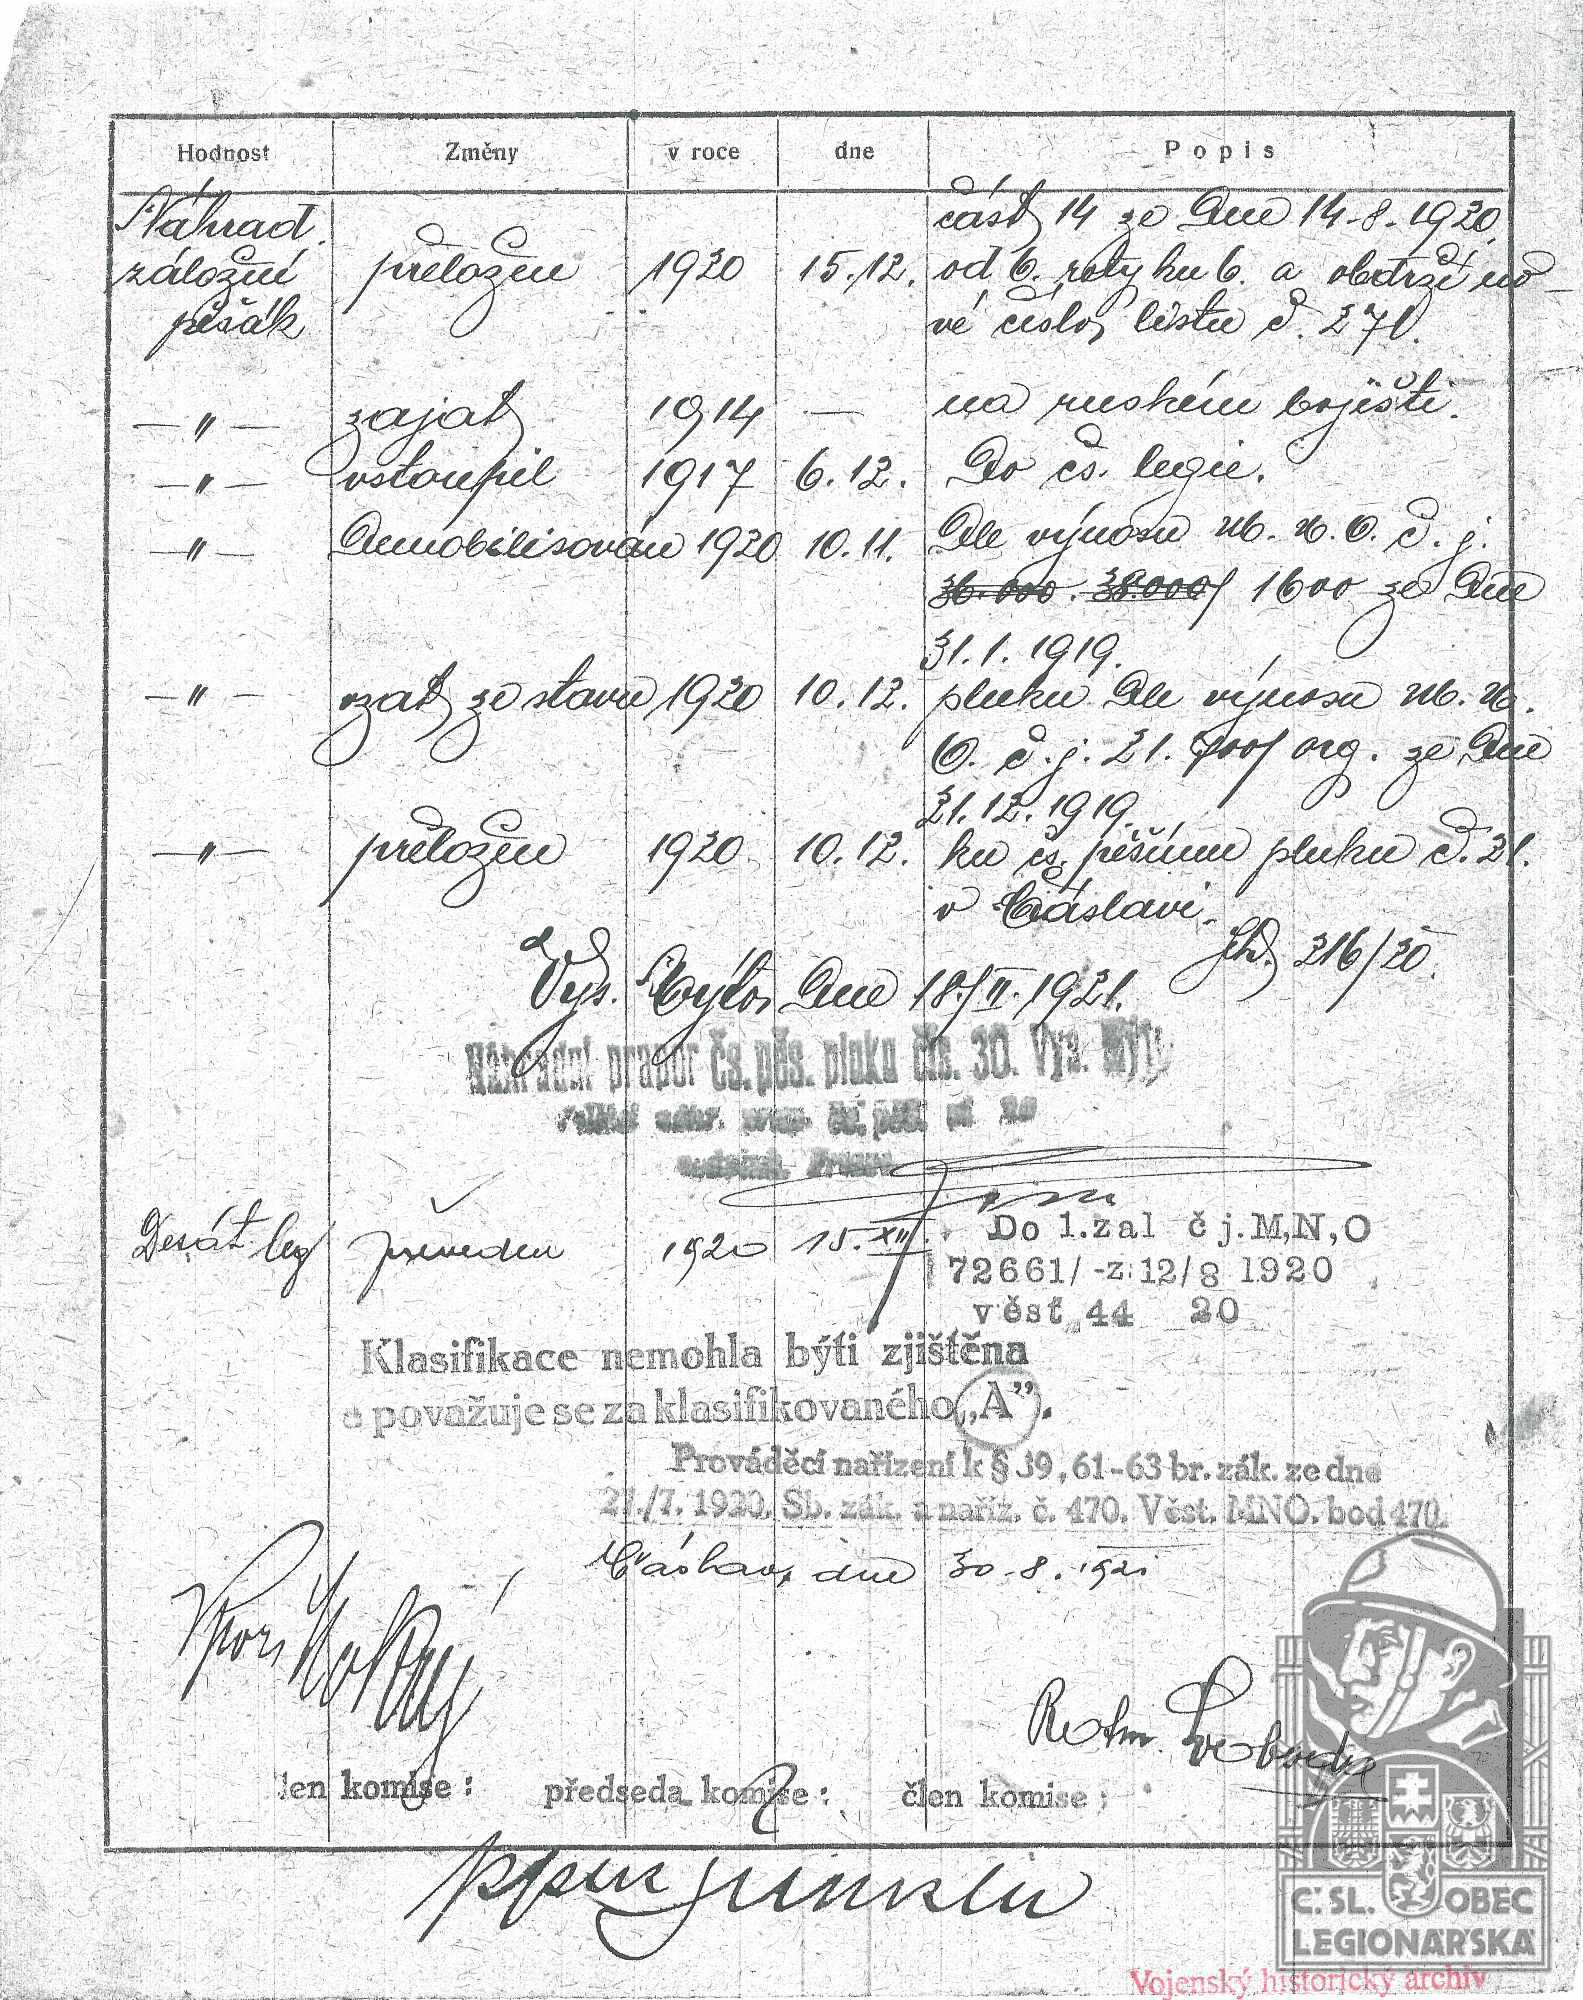 Hodnost Změny v roce dne Popis
část 14 ze dne 14.8.1920.
Náhrad.
záložní přeložen 1920 15.12. od 6. roty ku 6. a obdrží no-
pěšák vé číslo listu č. 271.
—"— zajat 1914 — na ruském bojišti.
—"— vstoupil 1917 6.12. Do čs. legie.
—"— Demobilisován 1920 10.11. Dle výnosu M. N. O. č. j.
36.000. 38.000/ 1600 ze dne
31.1.1919.
—"— vzat ze stavu 1920 10.12. pluku dle výnosu M. N.
O. č. j. 21.700/ org. ze dne
21.12.1919.
—"— přeložen 1920 10.12. ku čs. pěšímu pluku č. 21.
v Čáslavi.
216/20.
Vys. Mýto, dne 18./II. 1921.
Náhradní prapor čs. pěš. pluku čís. 30. Vys. Mýto
Desát. leg převeden 1920 15. XII. Do 1. zal č j. M,N,O
72661/-z 12/8 1920
věst 44 20
Klasifikace nemohla býti zjištěna
a považuje se za klasifikovaného „A”.
Prováděcí nařízení k § 39, 61-63 br. zák. ze dne
27./7. 1920. Sb. zák. a naříz. č. 470. Věst. MNO. bod 470.
Čáslav, dne 30.8.1921
Rotm. Svoboda
len komise: předseda komise: člen komise:
Č.SL. OBEC
LEGIONÁŘSKÁ
Vojenský historický archiv